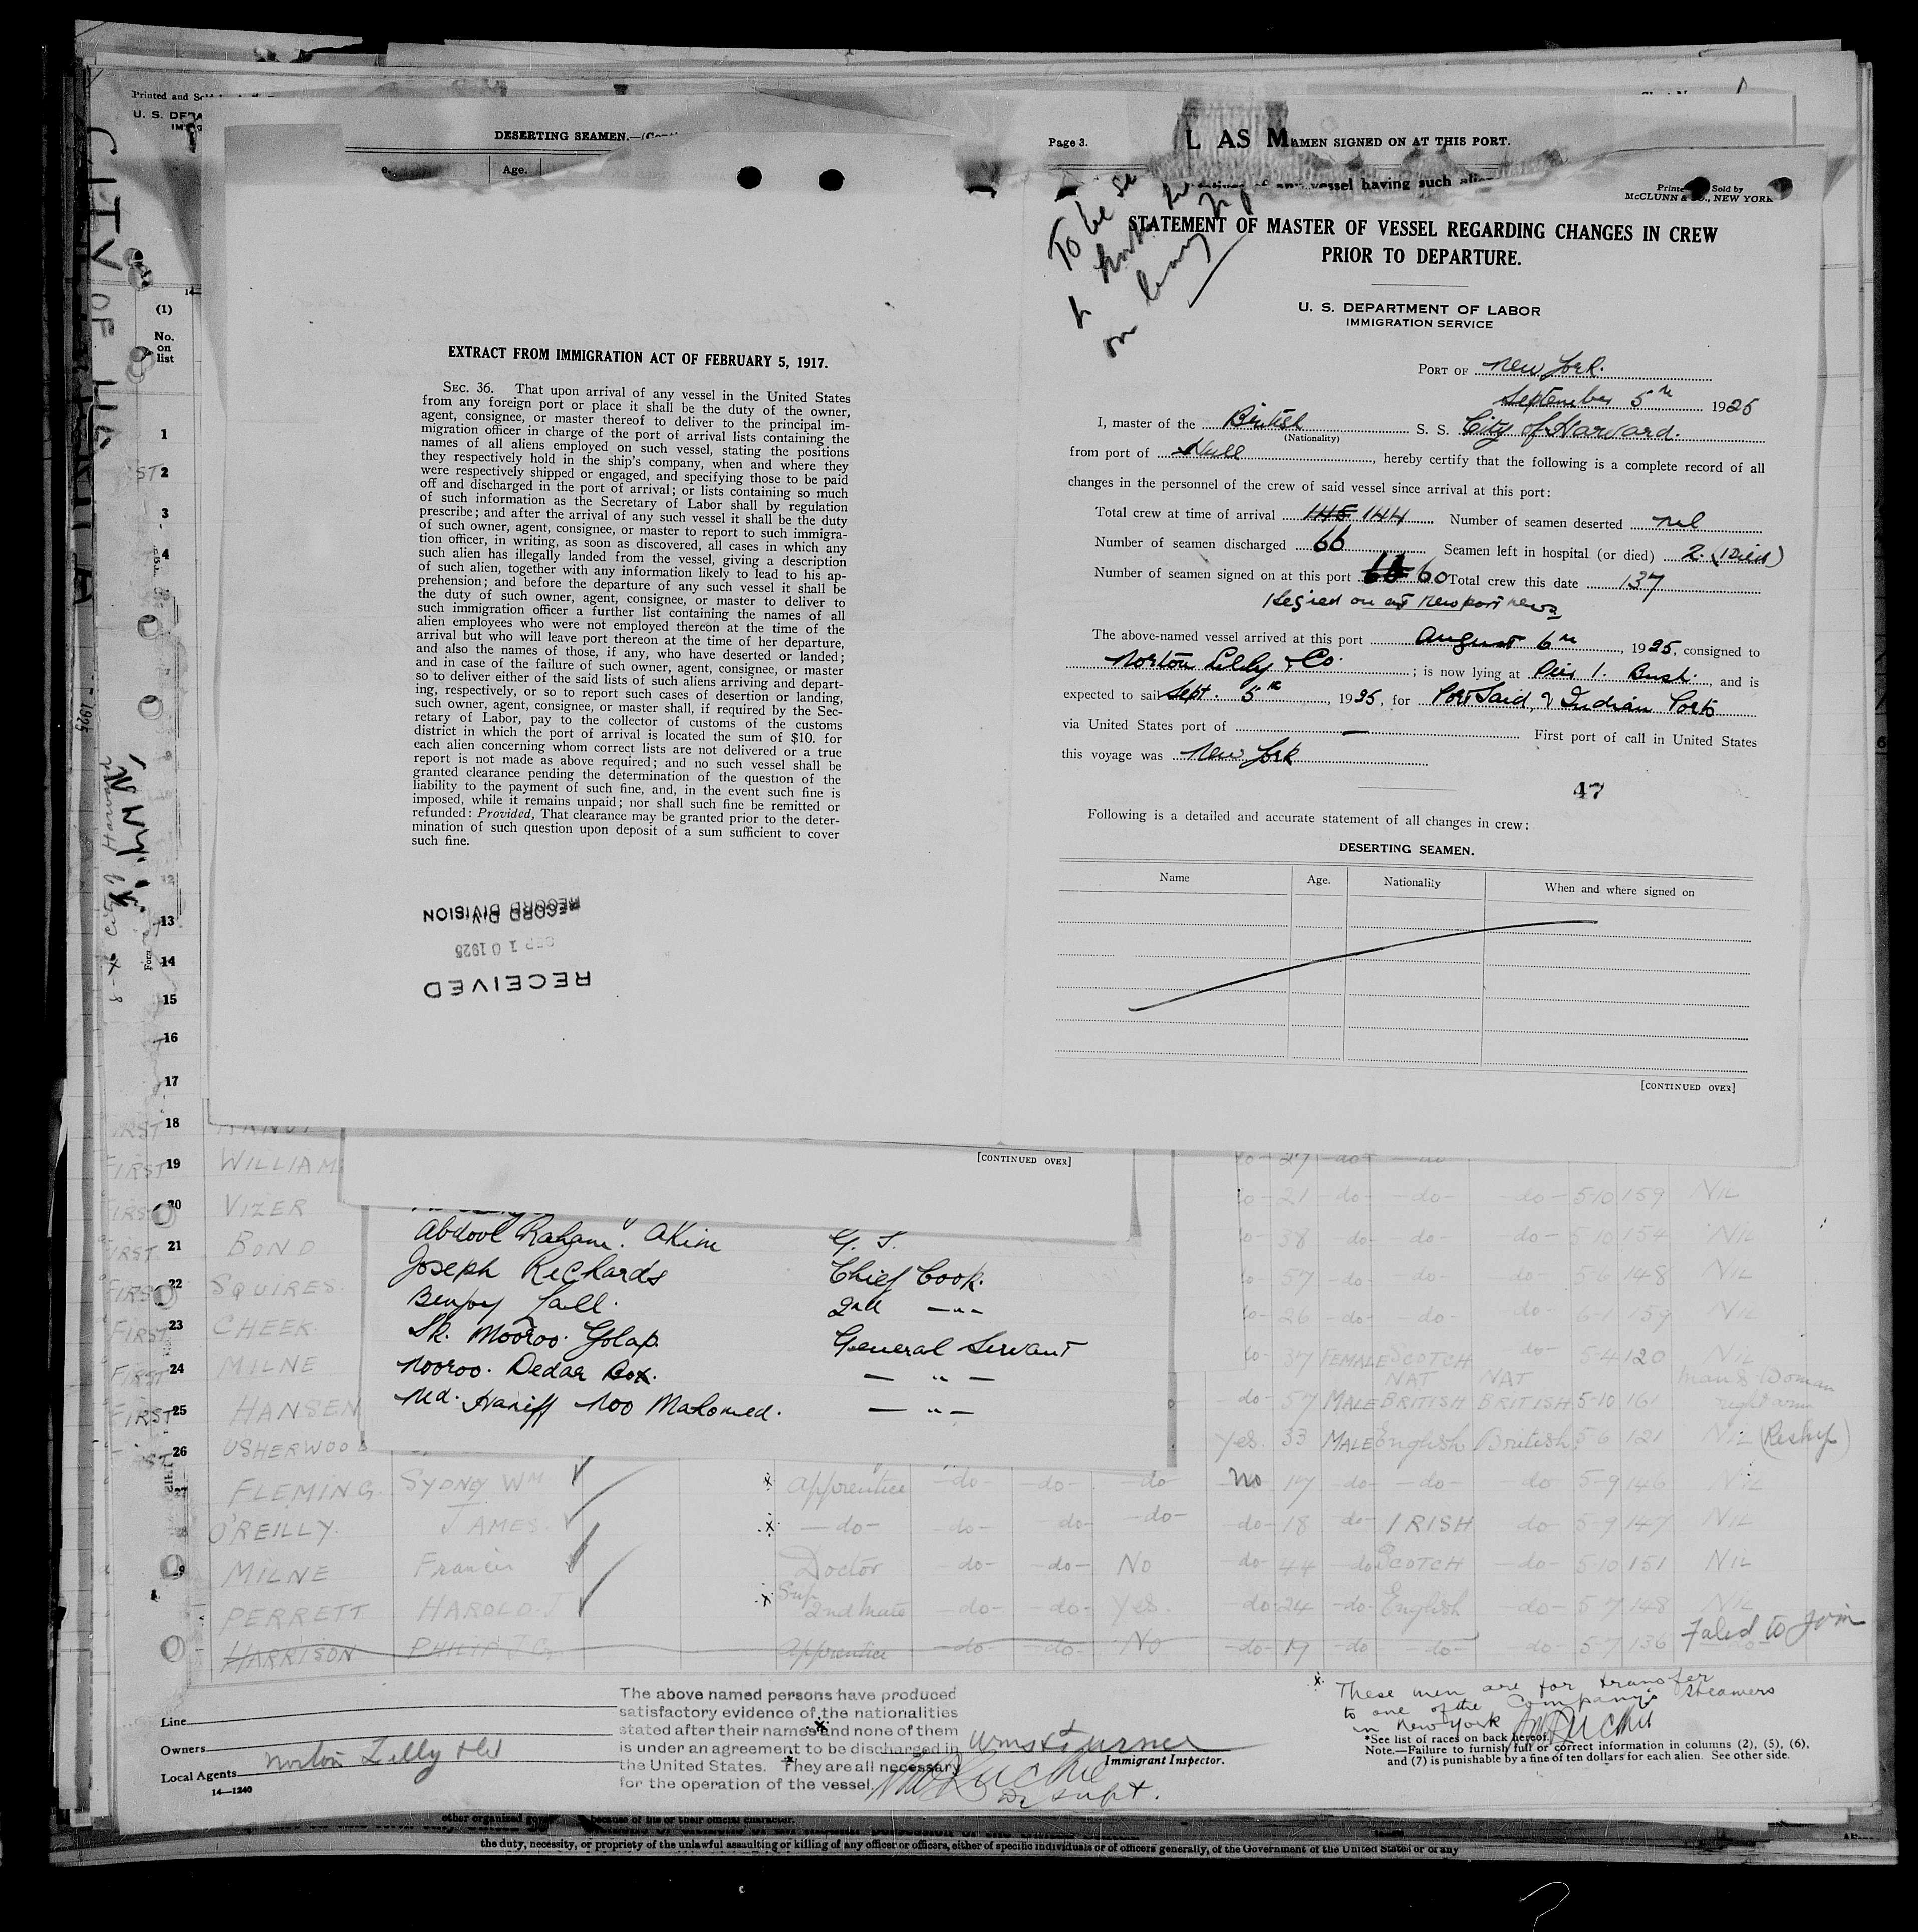 Printed and
U. S. DEPA
CITY OF HA
(1)
No.
on
list
DESERTING SEAMEN.
Age.
EXTRACT FROM IMMIGRATION ACT OF FEBRUARY 5, 1917.
SEC. 36. That upon arrival of any vessel in the United States
from any foreign port or place it shall be the duty of the owner,
agent, consignee, or master thereof to deliver to the principal im-
migration officer in charge of the port of arrival lists containing the
names of all aliens employed on such vessel, stating the positions
they respectively hold in the ship's company, when and where they
were respectively shipped or engaged, and specifying those to be paid
off and discharged in the port of arrival; or lists containing so much
of such information as the Secretary of Labor shall by regulation
prescribe; and after the arrival of any such vessel it shall be the duty
of such owner, agent, consignee, or master to report to such immigra-
tion officer, in writing, as soon as discovered, all cases in which any
such alien has illegally landed from the vessel, giving a description
of such alien, together with any information likely to lead to his ap-
prehension; and before the departure of any such vessel it shall be
the duty of such owner, agent, consignee, or master to deliver to
such immigration officer a further list containing the names of all
alien employees who were not employed thereon at the time of the
arrival but who will leave port thereon at the time of her departure,
and also the names of those, if any, who have deserted or landed;
and in case of the failure of such owner, agent, consignee, or master
so to deliver either of the said lists of such aliens arriving and depart-
ing, respectively, or so to report such cases of desertion or landing,
such owner, agent, consignee, or master shall, if required by the Sec-
retary of Labor, pay to the collector of customs of the customs
district in which the port of arrival is located the sum of $10. for
each alien concerning whom correct lists are not delivered or a true
report is not made as above required; and no such vessel shall be
granted clearance pending the determination of the question of the
liability to the payment of such fine, and, in the event such fine is
imposed, while it remains unpaid; nor shall such fine be remitted or
refunded: Provided, That clearance may be granted prior to the deter-
mination of such question upon deposit of a sum sufficient to cover
such fine.
RECEIVED
SEP 10 1925
RECORD DIVISION
Page 3.
L AS MAMEN SIGNED ON AT THIS PORT.
any vessel having such
To be
on
Printed Sold by
McCLUNN & CO., NEW YORK
STATEMENT OF MASTER OF VESSEL REGARDING CHANGES IN CREW
PRIOR TO DEPARTURE.
U. S. DEPARTMENT OF LABOR
IMMIGRATION SERVICE
PORT OF New York.
September 5th 1925
I, master of the British S. S. City of Harvard.
(Nationality)
from port of Hull, hereby certify that the following is a complete record of all
changes in the personnel of the crew of said vessel since arrival at this port:
Total crew at time of arrival 145 144 Number of seamen deserted nil
Number of seamen discharged 66 Seamen left in hospital (or died) 2. (Died)
Number of seamen signed on at this port 60 Total crew this date 137
1 signed on at Newport News
The above-named vessel arrived at this port August 6th, 1925, consigned to
Norton Lilly & Co.; is now lying at Pier 1. Bush., and is
expected to sail Sept. 5th, 1925, for Port Said, & Indian Ports
via United States port of — First port of call in United States
this voyage was New York
47
Following is a detailed and accurate statement of all changes in crew:
DESERTING SEAMEN.
Name Age. Nationality When and where signed on
[CONTINUED OVER]
[CONTINUED OVER]
Abdool Raham. Akim G. S.
Joseph Richards Chief Cook.
Benjoy Lall. 2nd -"-
Sk. Mooroo. Golap. General Servant
Nooroo. Dedar Box. — " —
Md. Haniff Noo Mahomed. — " —
1
ST 2
3
4
13
14
15
16
17
18
FIRST 19 WILLIAM do- 27 -do-
FIRST 20 VIZER do- 21 -do- -do- -do- 5-10 159 NIL
FIRST 21 BOND do- 38 -do- -do- -do- 5-10 154 NIL
FIRST 22 SQUIRES. do- 57 -do- -do- -do- 5-6 148 NIL
FIRST 23 CHEEK. do- 26 -do- -do- -do- 6-1 159 NIL
FIRST 24 MILNE do- 37 FEMALE SCOTCH do- 5-4 120 NIL
FIRST 25 HANSEN do- 57 MALE NAT BRITISH NAT BRITISH 5-10 161 Man & Woman right arm
26 USHERWOOD Yes. 33 MALE English British 5-6 121 NIL (Reship)
27 FLEMING. SYDNEY WM x Apprentice -do- -do- -do- No 17 -do- -do- -do 5-9 146 NIL
O'REILLY. JAMES. x -do- -do- -do- -do- -do- 18 -do- IRISH do- 5-9 147 NIL
MILNE Francis Doctor -do- -do- No -do- 44 -do- SCOTCH -do- 5-10 151 NIL
PERRETT HAROLD. J x Sup 2nd Mate -do- -do- Yes. -do- 24 -do- English -do- 5-7 148 NIL
HARRISON PHILIP J.G. Apprentice -do- -do- No -do- 17 -do -do- do- 5-7 136 Failed to Join
Line
Owners
Local Agents Norton Lilly & Co
14—1240
The above named persons have produced
satisfactory evidence of the nationalities
stated after their names and none of them
is under an agreement to be discharged in
the United States. They are all necessary
for the operation of the vessel.
Immigrant Inspector.
x These men are for transfer
to one of the Company's steamers
in New York
*See list of races on back hereof.
Note.—Failure to furnish full or correct information in columns (2), (5), (6),
and (7) is punishable by a fine of ten dollars for each alien. See other side.
other organized because of his or their official character.
the duty, necessity, or propriety of the unlawful assaulting or killing of any officer or officers, either of specific individuals or of officers generally, of the Government of the United States or of any